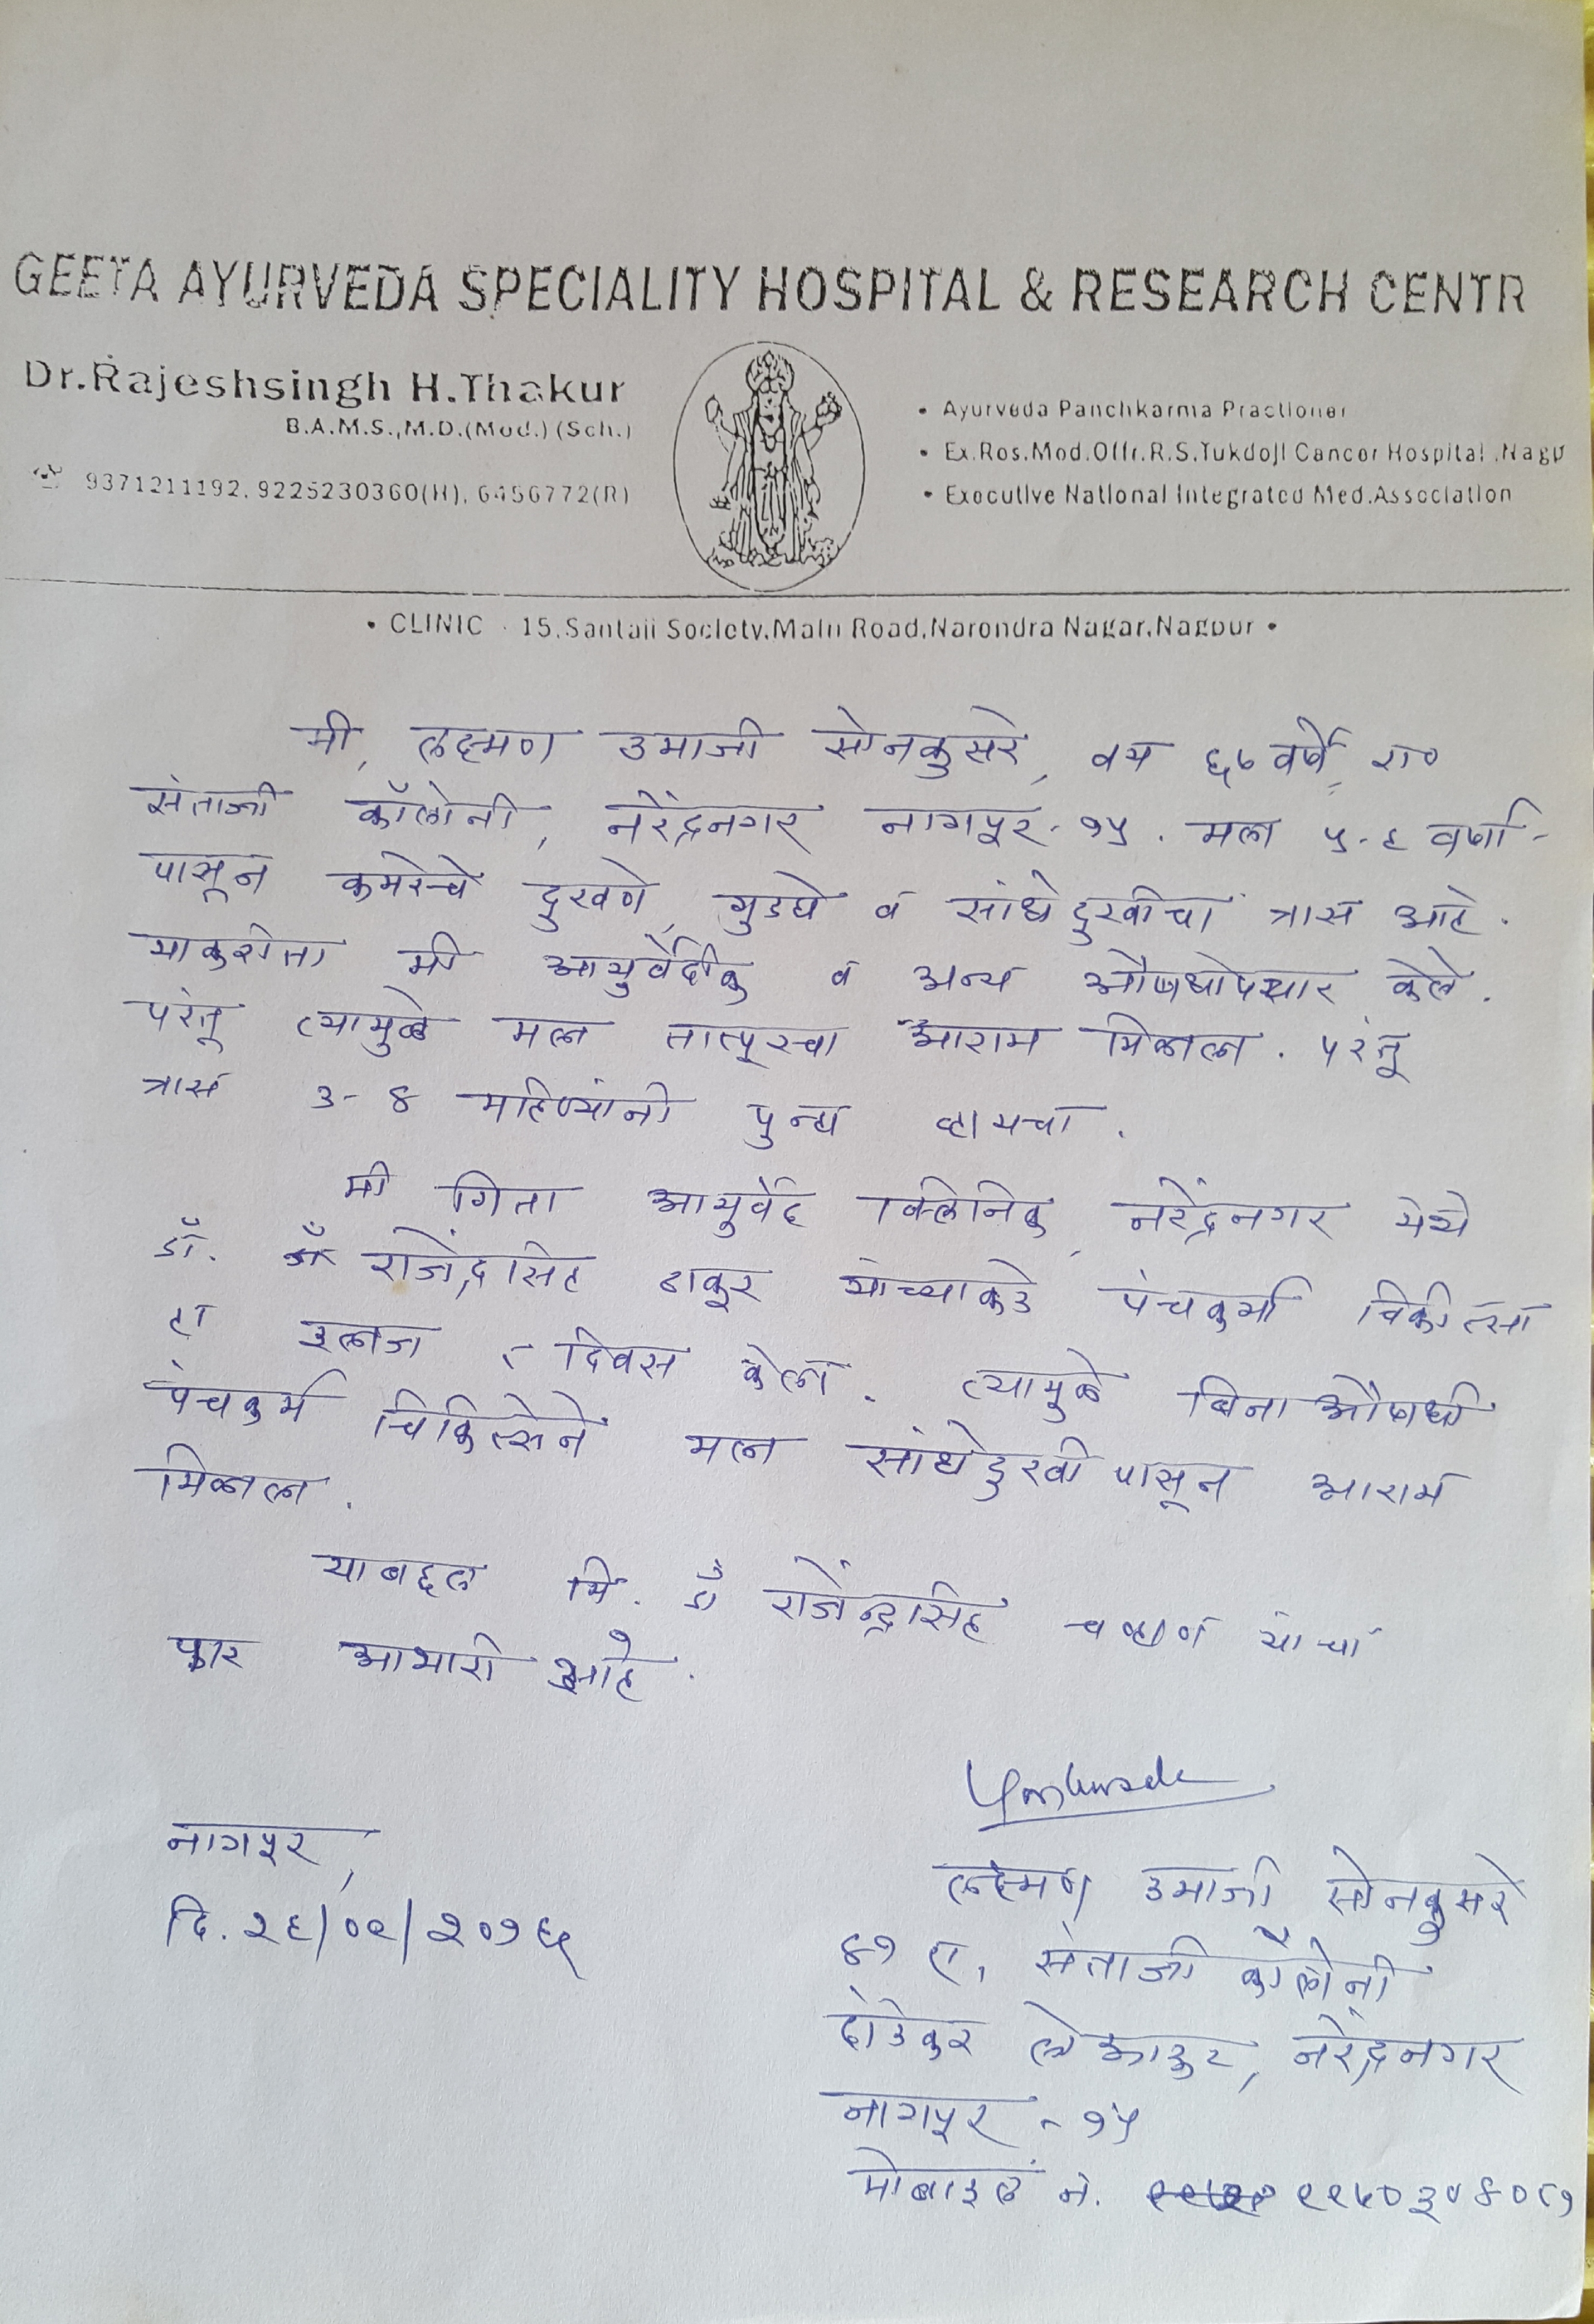 GEETA AYURVEDA SPECIALITY HOSPITAL & RESEARCH CENTR
Dr.Rajeshsingh H.Thakur
B.A.M.S.,M.D.(Med.) (Sch.)
9371211192, 9225230360(H), 6456772(R)
• Ayurveda Panchkarma Practioner
• Ex.Res.Med.Offr.R.S.Tukdoji Cancer Hospital ,Nagp
• Executive National Integrated Med.Association
• CLINIC - 15,Santaji Society,Main Road,Narendra Nagar,Nagpur •
मी, लक्ष्मण उमाजी सोनकुसरे, वय ६७ वर्षे, रा०
संताजी कॉलोनी, नरेंद्रनगर नागपूर-१५. मला ५-६ वर्षा-
पासून कमरेचे दुखणे, गुडघे व सांधेदुखीचा त्रास आहे.
याकरीता मी आयुर्वेदीक व अन्य औषधोपचार केले.
परंतू त्यामुळे मला तात्पूरचा आराम मिळाला. परंतू
त्रास ३-४ महिण्यांनी पुन्हा व्हायचा.
मी गिता आयुर्वेद क्लिनिक, नरेंद्रनगर येथे
डॉ. राजेंद्रसिंह ठाकूर यांच्याकडे पंचकर्मा चिकीत्सा
हा इलाज ८ दिवस केला. त्यामुळे बिना औषधी
पंचकर्म चिकित्सेने मला सांधेदुखी पासून आराम
मिळाला.
याबद्दल मि. डॉ राजेंन्द्रसिंह चव्हाण यांचा
फार आभारी आहे.
नागपूर,
दि. २६/०९/२०१६
लक्ष्मण उमाजी सोनकुसरे
४१ ए, संताजी कॉलोनी
दांडेकर ले आऊट, नरेंद्रनगर
नागपूर - १५
मोबाईल नं.